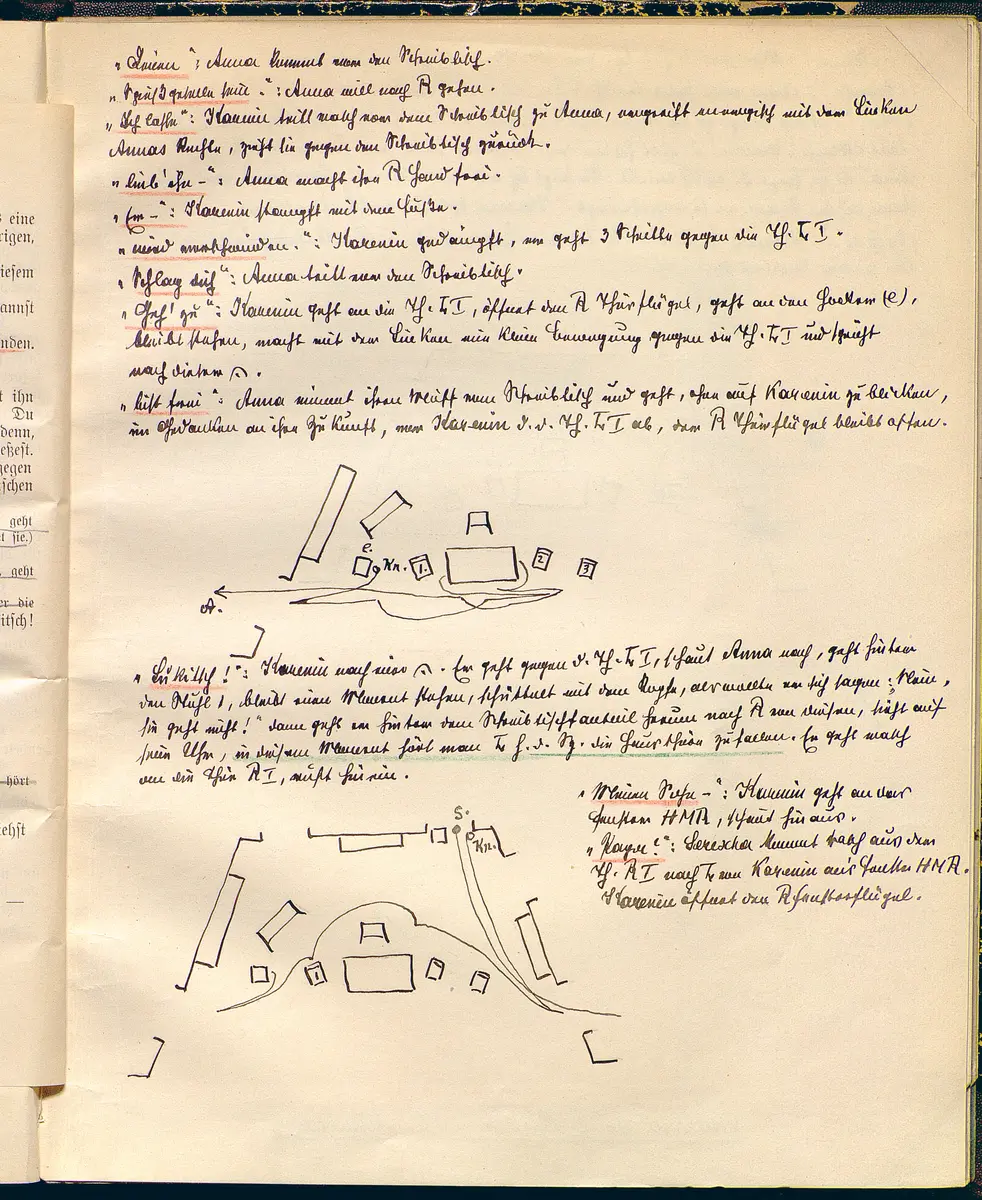 s eine
rigen,
iesem
annst
nden.
t ihn
Du
denn,
eßest.
gegen
schen
geht
t sie.)
geht
er die
itsch!
hört
tehst
„ : Anna kommt vor den Schreibtisch.
„ : Anna will nach R gehen.
„Ich lasse“: Karenin tritt rasch vor dem Schreibtisch zu Anna, ergreift energisch mit der Linken
Annas Rechte, zieht sie gegen den Schreibtisch zurück.
„lieb' ihn –“: Anna macht ihre R Hand frei.
„Er –“: Karenin stampft mit dem Fuße.
„wird verschwinden.“: Karenin gedämpft, er geht 3 Schritte gegen die Th. L I.
„Schlag dich“: Anna tritt vor den Schreibtisch.
„Geh! zu“: Karenin geht an die Th. L I, öffnet den R Thürflügel, geht an den Hocker (e),
bleibt stehen, macht mit der Linken eine kleine Bewegung gegen die Th. L I und spricht
nach dieser ⌒.
„bist frei“: Anna nimmt ihren Muff vom Schreibtisch und geht, ohne auf Karenin zu blicken,
in Gedanken an ihre Zukunft, vor Karenin d. d. Th. L I ab, der R Thürflügel bleibt offen.
e.
Kn.
1.
2
3
A.
„Lukitsch!“: Karenin nach einer ⌒. Er geht gegen d. Th. L I, schaut Anna nach, geht hinter
den Stuhl 1, bleibt einen Moment stehen, schüttelt mit dem Kopfe, als wollte er sich sagen: „Nein,
sie geht nicht!“ dann geht er hinter dem Schreibtischfauteil herum nach R von diesem, sieht auf
seine Uhr, in diesem Moment hört man L h. d. Sz. die Hausthüre zufallen. Er geht rasch
an die Thür R I, ruft hinein.
„Meinen Sohn –“: Karenin geht an das
Fenster HMR, schaut hinaus.
„Papa?“: Serescha kommt rasch aus der
Th. R I nach L von Karenin an's Fenster HMR.
Karenin öffnet den R Fensterflügel.
S.
Kn.
1